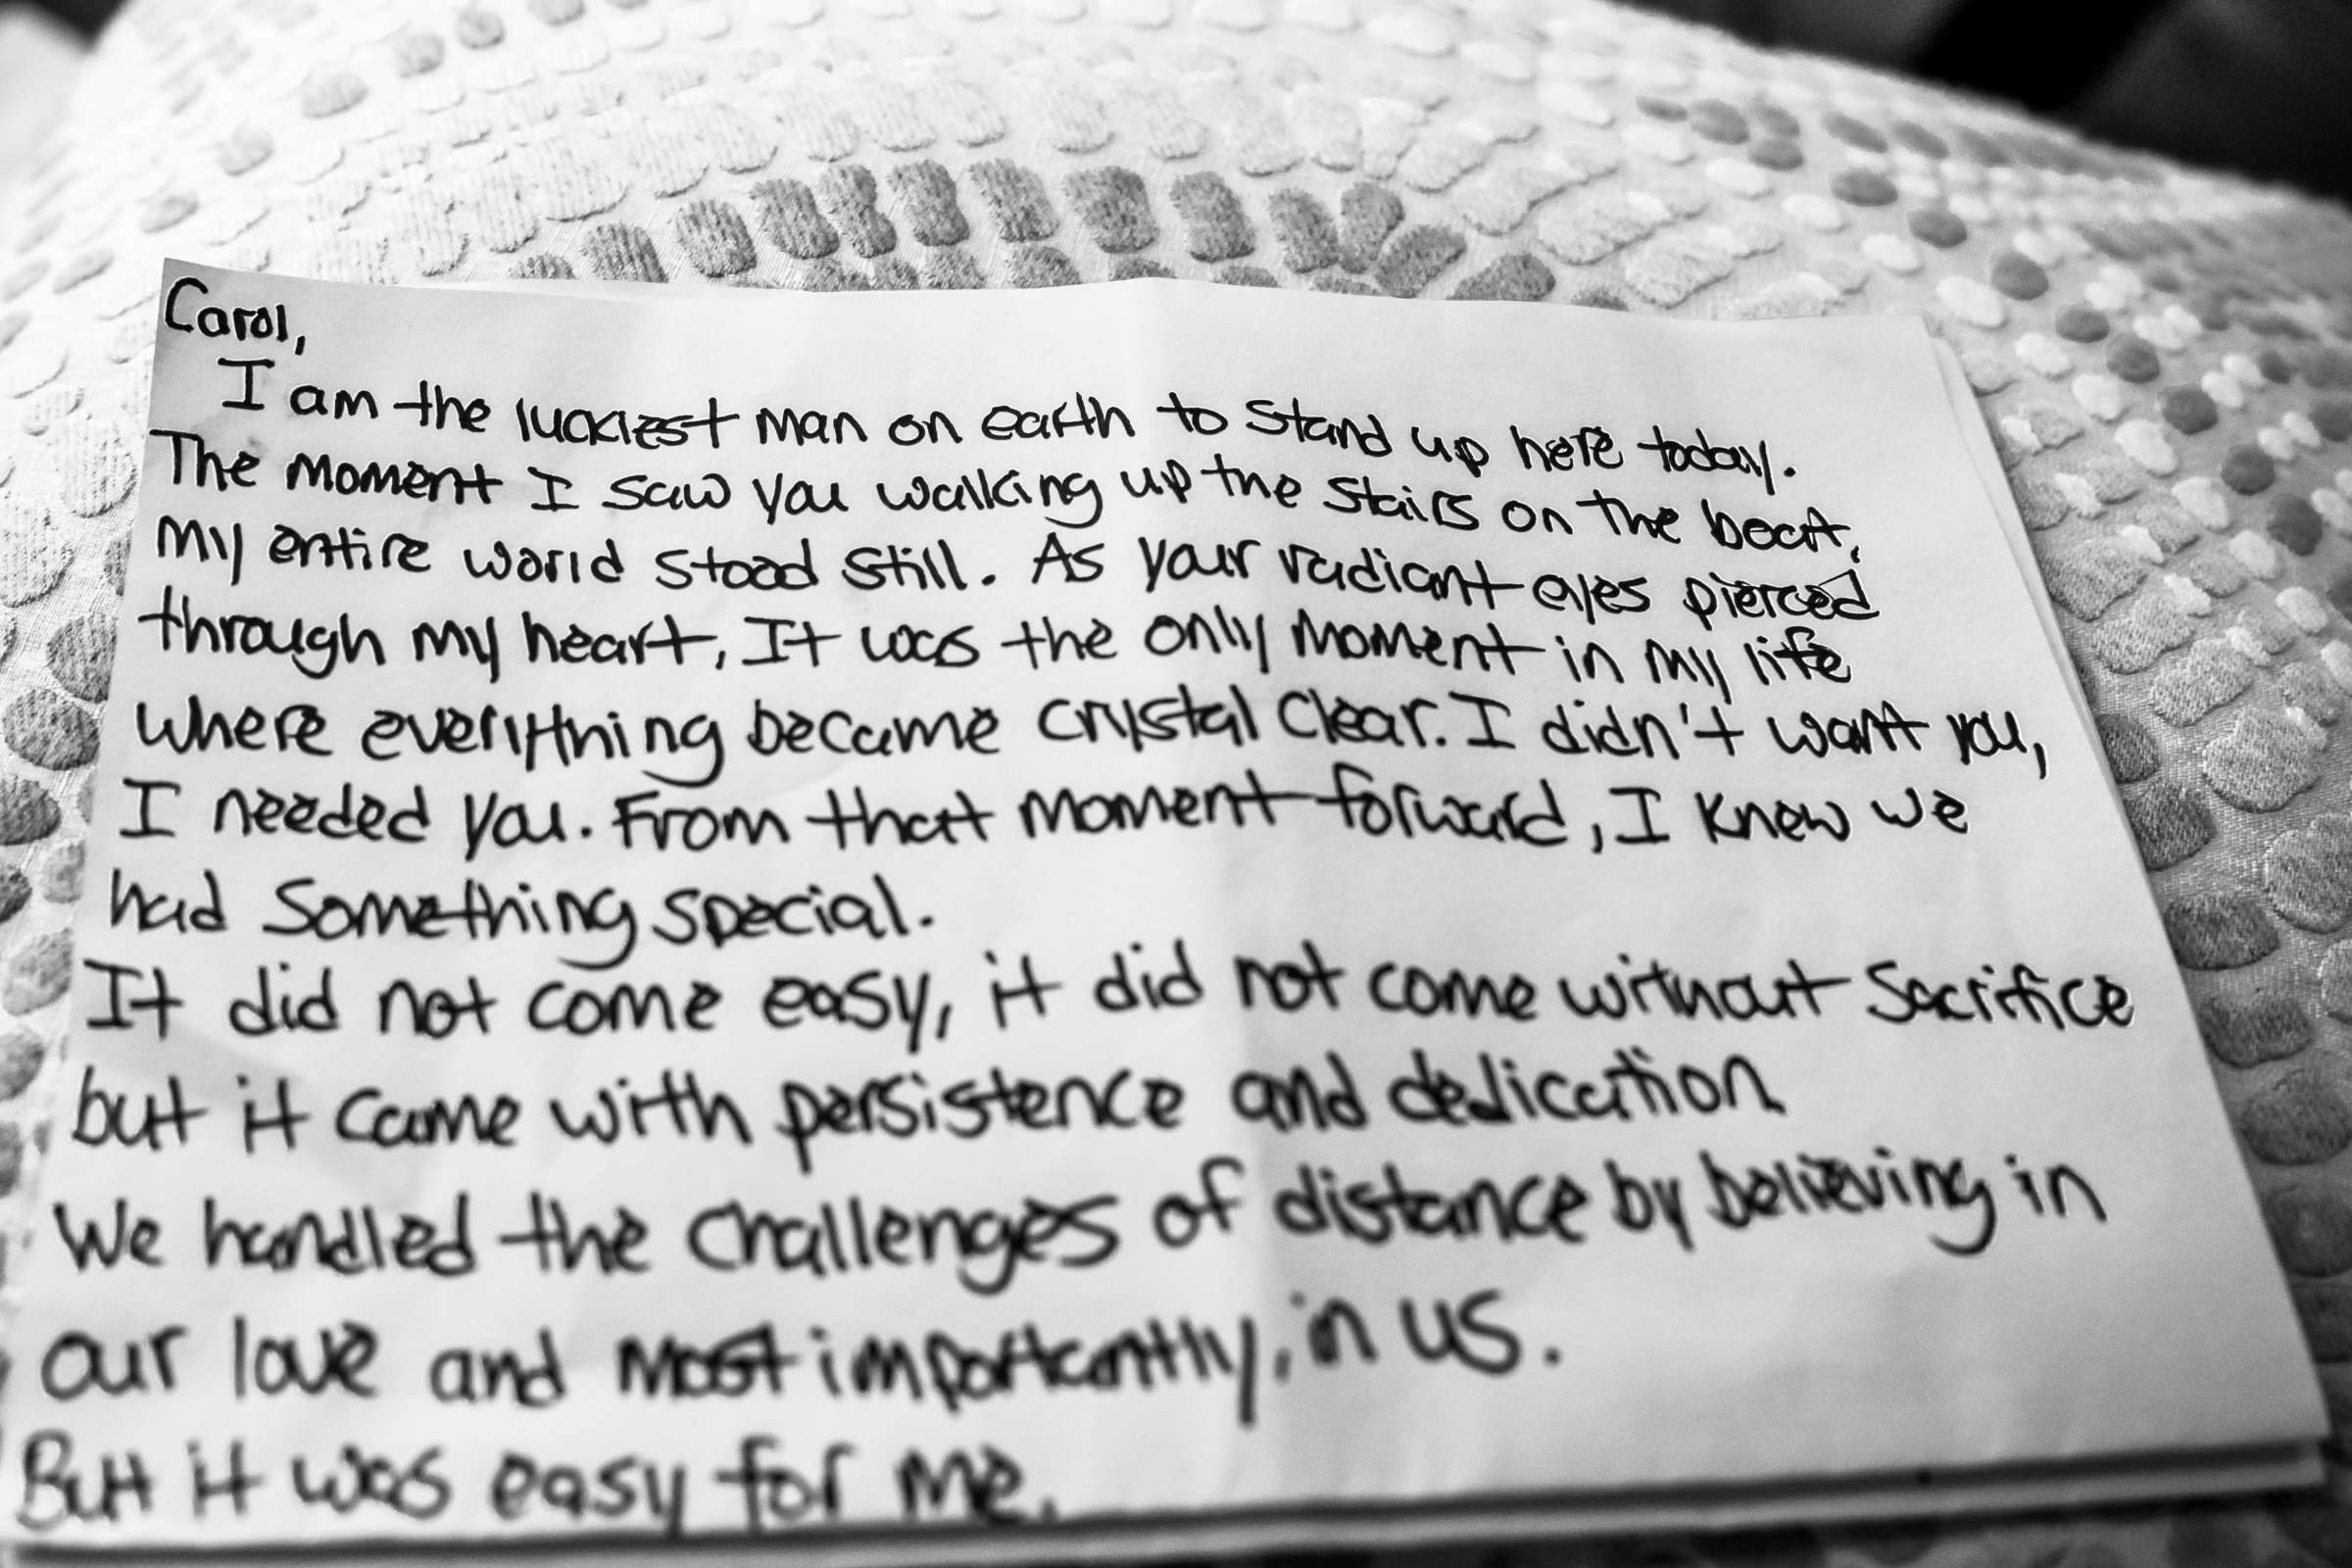 Carol,
I am the luckiest man on earth to stand up here today.
The moment I saw you walking up the stairs on the boat,
my entire world stood still. As your radiant eyes pierced
through my heart, It was the only moment in my life
where everything became crystal clear. I didn't want you,
I needed you. From that moment forward, I knew we
had something special.
It did not come easy, it did not come without sacrifice
but it came with persistence and dedication
We handled the challenges of distance by believing in
our love and most importantly, in us.
But it was easy for me.